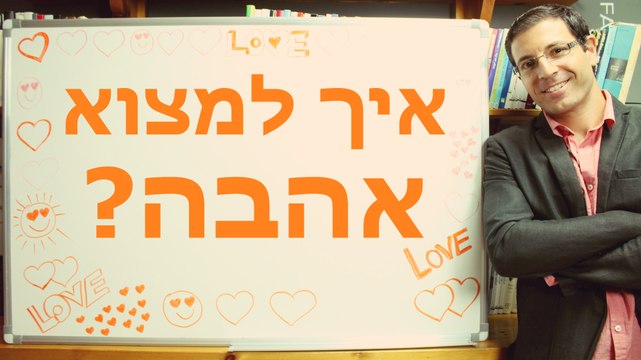 LOVE
איך למצוא
אהבה?
LOVE
LOVE
FA